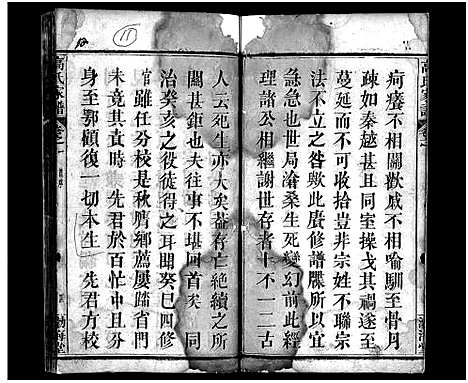 高氏家譜 卷之一
痾癢不相關歡戚不相喻馴至骨月
疎如秦越甚且同室操戈其禍遂至
蔓延而不可收拾豈非宗姓不聯宗
法不立之咎歟此賡修譜牒所以
急急也世局滄桑生死變幻前此經
理諸公相繼謝世存者十不一二古
勃海堂
11
人云死生亦大矣益存亡絕續之所
關甚鉅也夫往事不堪回首矣 同
治癸亥之役徒得之耳聞癸巳四修
官雖任分校是秋膺鄉薦屢踏省門
未竟其責時 先君於百忙中且分
身至鄂顧復一切本生 先君方校
高氏家譜 卷之一
勃海堂